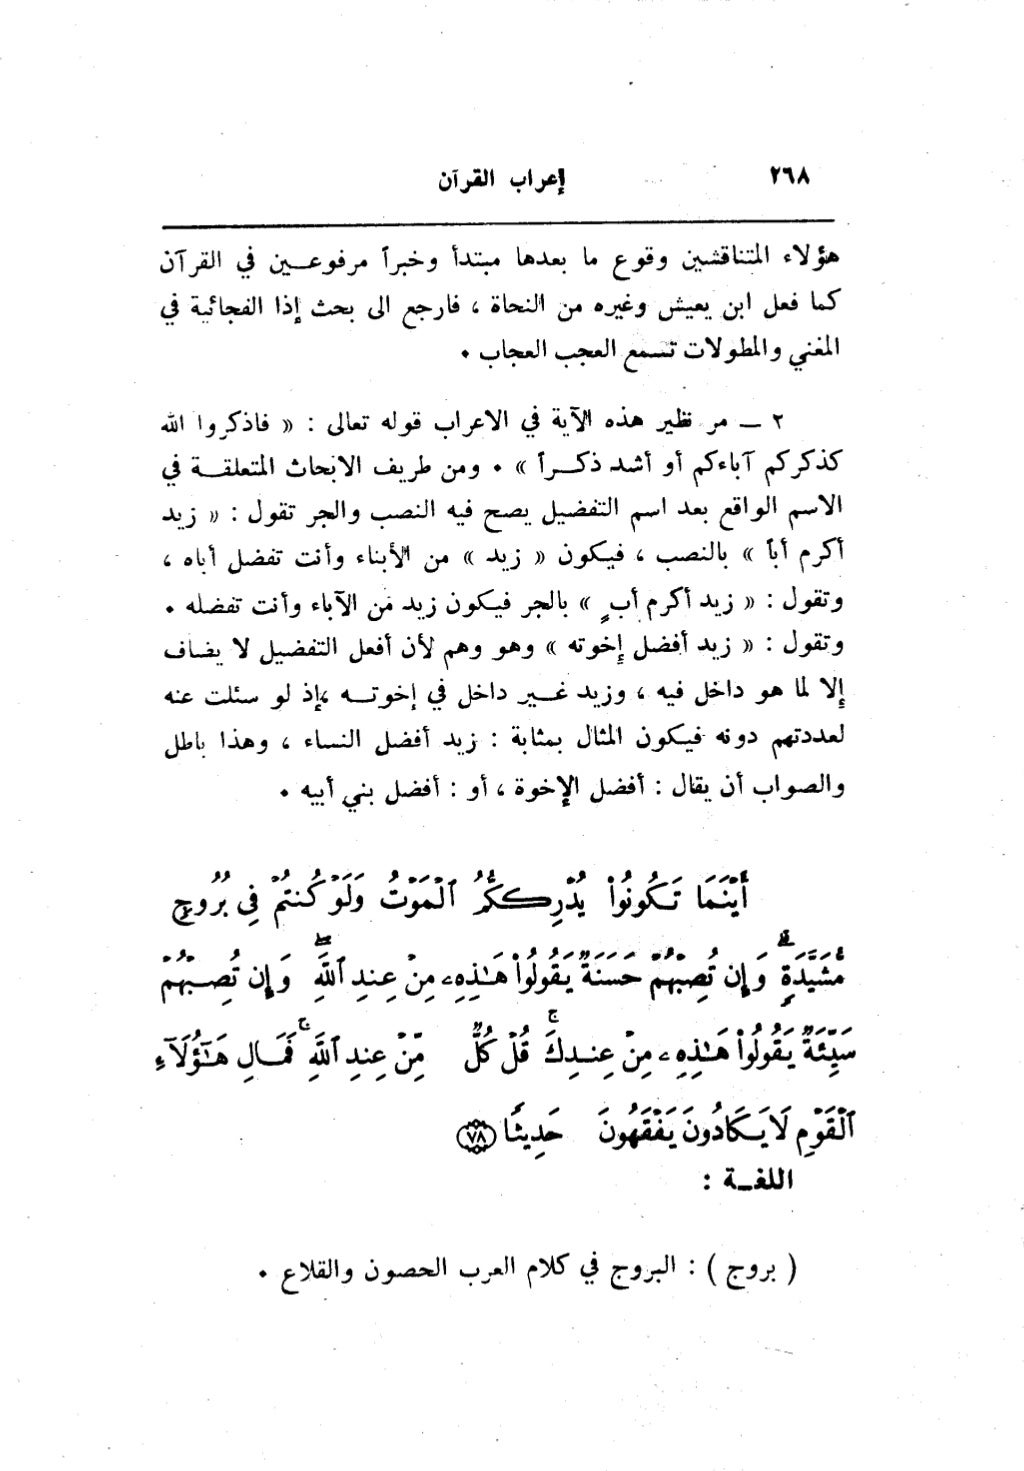 ٢٦٨
إعراب القرآن
هؤلاء المتناقشين وقوع ما بعدها مبتدأ وخبراً مرفوعين في القرآن
كما فعل ابن يعيش وغيره من النحاة ، فارجع الى بحث إذا الفجائية في
المغني والمطولات تسمع العجب العجاب ٠
٢ ــ مر نظير هذه الآية في الاعراب قوله تعالى : « فاذكروا الله
كذكركم آباءكم أو أشد ذكراً » ٠ ومن طريف الابحاث المتعلقة في
الاسم الواقع بعد اسم التفضيل يصح فيه النصب والجر تقول : « زيد
أكرم أباً » بالنصب ، فيكون « زيد » من الأبناء وأنت تفضل أباه ،
وتقول : « زيد أكرم أبٍ » بالجر فيكون زيد من الآباء وأنت تفضله ٠
وتقول : « زيد أفضل إخوته » وهو وهم لأن أفعل التفضيل لا يضاف
إلا لما هو داخل فيه ، وزيد غير داخل في إخوته ،إذ لو سئلت عنه
لعددتهم دونه فيكون المثال بمثابة : زيد أفضل النساء ، وهذا باطل
والصواب أن يقال : أفضل الإخوة ، أو : أفضل بني أبيه ٠
أَيْنَمَا تَكُونُوا۟ يُدْرِككُّمُ ٱلْمَوْتُ وَلَوْ كُنتُمْ فِي بُرُوجٍ
مُّشَيَّدَةٍ ۗ وَإِن تُصِبْهُمْ حَسَنَةٌ يَقُولُوا۟ هَـٰذِهِۦ مِنْ عِندِ ٱللَّهِ ۖ وَإِن تُصِبْهُمْ
سَيِّئَةٌ يَقُولُوا۟ هَـٰذِهِۦ مِنْ عِندِكَ ۚ قُلْ كُلٌّ مِّنْ عِندِ ٱللَّهِ ۚ فَمَالِ هَـٰٓؤُلَآءِ
ٱلْقَوْمِ لَا يَكَادُونَ يَفْقَهُونَ حَدِيثًا ﴿٧٨﴾
اللغـة :
( بروج ) : البروج في كلام العرب الحصون والقلاع ٠